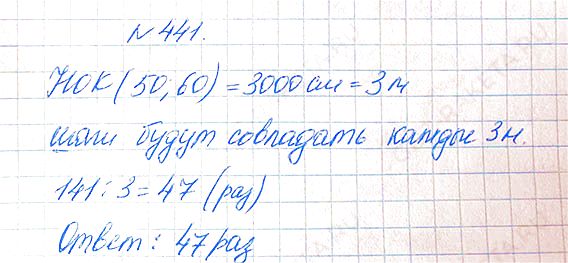 №441.
НОК(50;60) = 3000см = 3м
шаги будут совпадать каждые 3м.
141:3=47 (раз)
Ответ: 47 раз